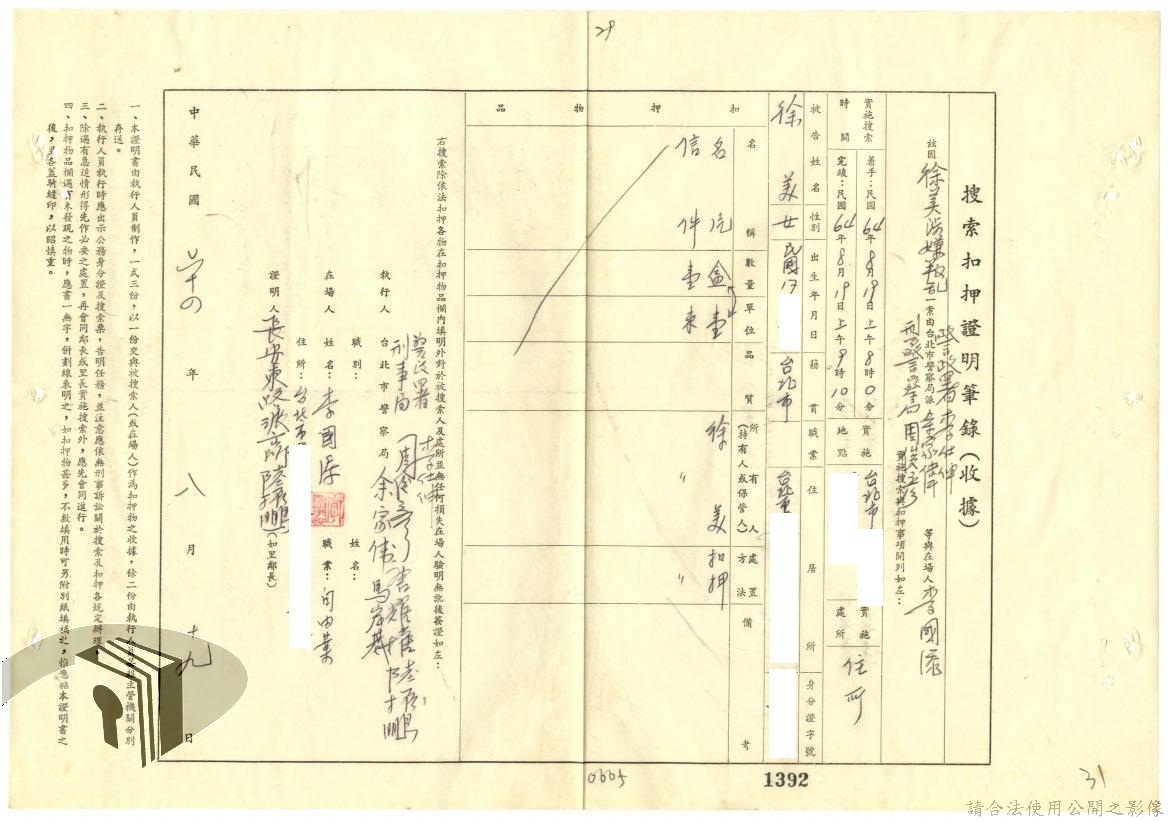 搜索扣押證明筆錄(收據)
茲因徐美涉嫌叛乱一案由台北市警察局派余家偉 等與在場人李國
警政署李仕
刑警
實施搜索與扣押事項開列如左:
實施搜索時間
着手:民國64年8月19日上午8時0分
完竣:民國64年8月19日上午9時10分
實施地點
台北市
實施處所
住所
被告姓名
性別
出生年月日
籍貫
職業
住居所
身分證字號
徐美
女
民國17
台北市
台北市
扣押物品
名稱
數量
單位
品質
所有人(持有人或保管人)
處置方法
備考
名 盒 壹 徐美 扣押
信件 壹 束 〃 〃
右搜索除依法扣押各物在扣押物品欄內填明外對於被搜索人及處所並無任何損失在場人驗明無訛後簽證如左:
執行人 台北市警察局 余家偉 馬
警政署
刑事局
李仕
在場人 姓名:李國
職別:
住所:台北市
姓名:
職業:自由業
證明人 長安東 (如里鄰長)
中華民國 六十四 年 八 月 十九 日
一、本證明書由執行人員制作,一式三份,以一份交與被搜索人(或在場人)作為扣押物之收據,餘二份由執行人員 主管機關分別
存送。
二、執行人員執行時應出示公務身分證及搜索票,告明任務,並注意應依無刑事訴訟關於搜索及扣押各規定辦理。
三、除遇有急迫情形得先作必要之處置,再會同鄰長或里長實施搜索外,應先會同進行。
四、扣押物品欄遇有未發現之物時,應書一無字,併劃線表明之,如扣押物甚多,不敷填用時可另附別紙填 之,惟應粘本證明書之
後,並各蓋騎縫印,以昭慎重。
29
0665
1392
31
請合法使用公開之影像